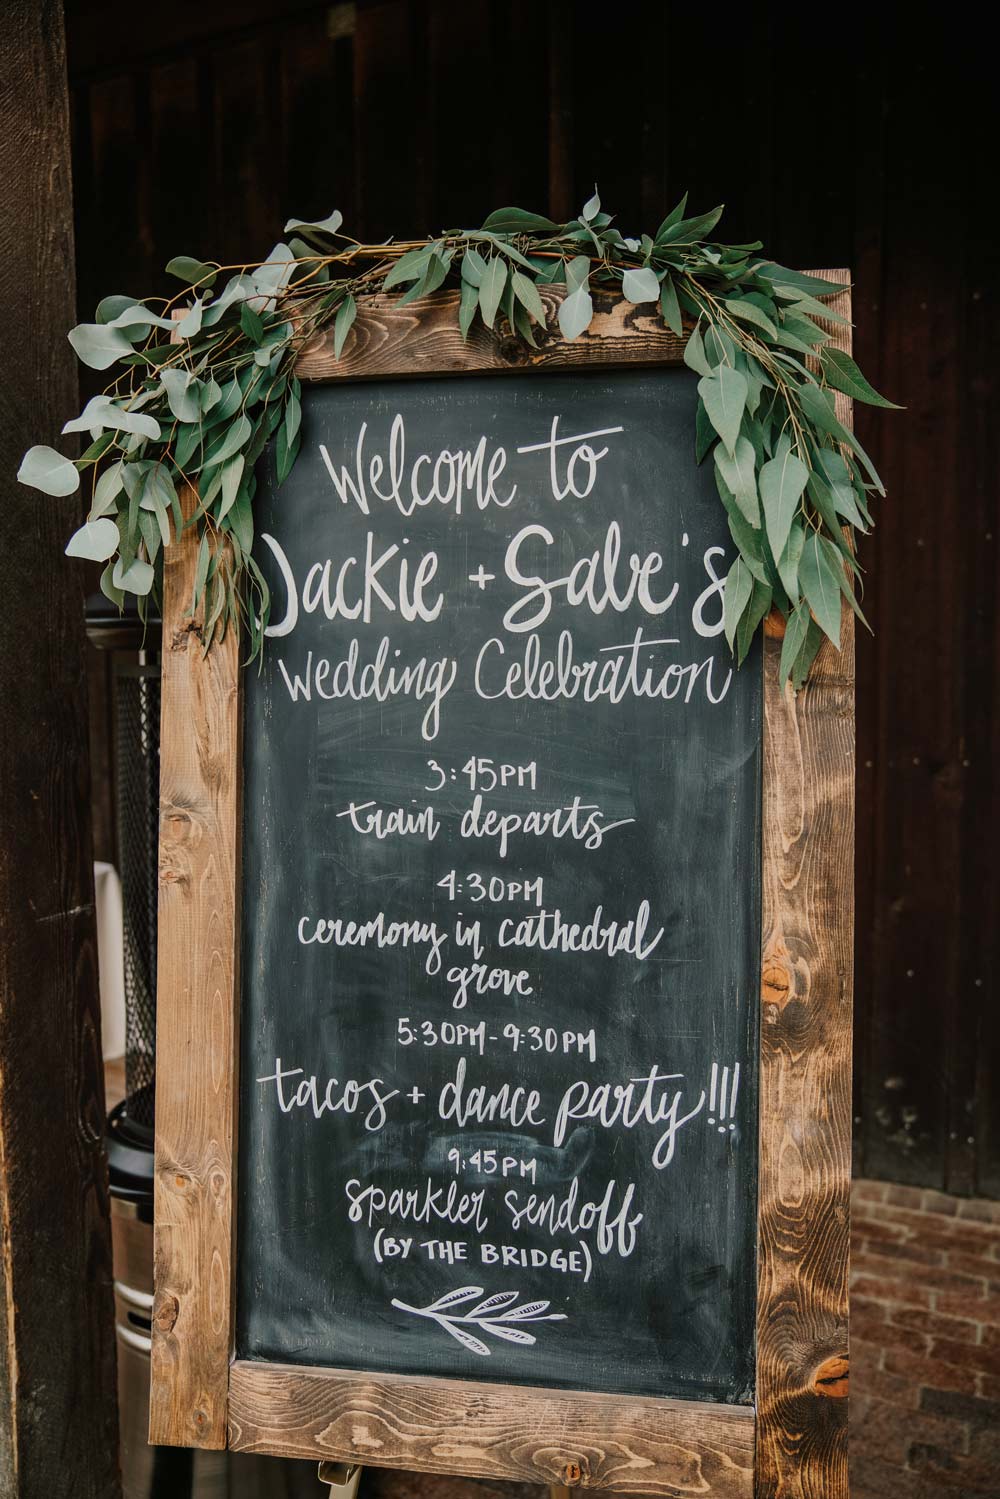 Welcome to
Jackie + Gabe's
Wedding Celebration
3:45PM
train departs
4:30PM
ceremony in cathedral
grove
5:30PM-9:30PM
tacos + dance party!!!
9:45PM
sparkler sendoff
(BY THE BRIDGE)